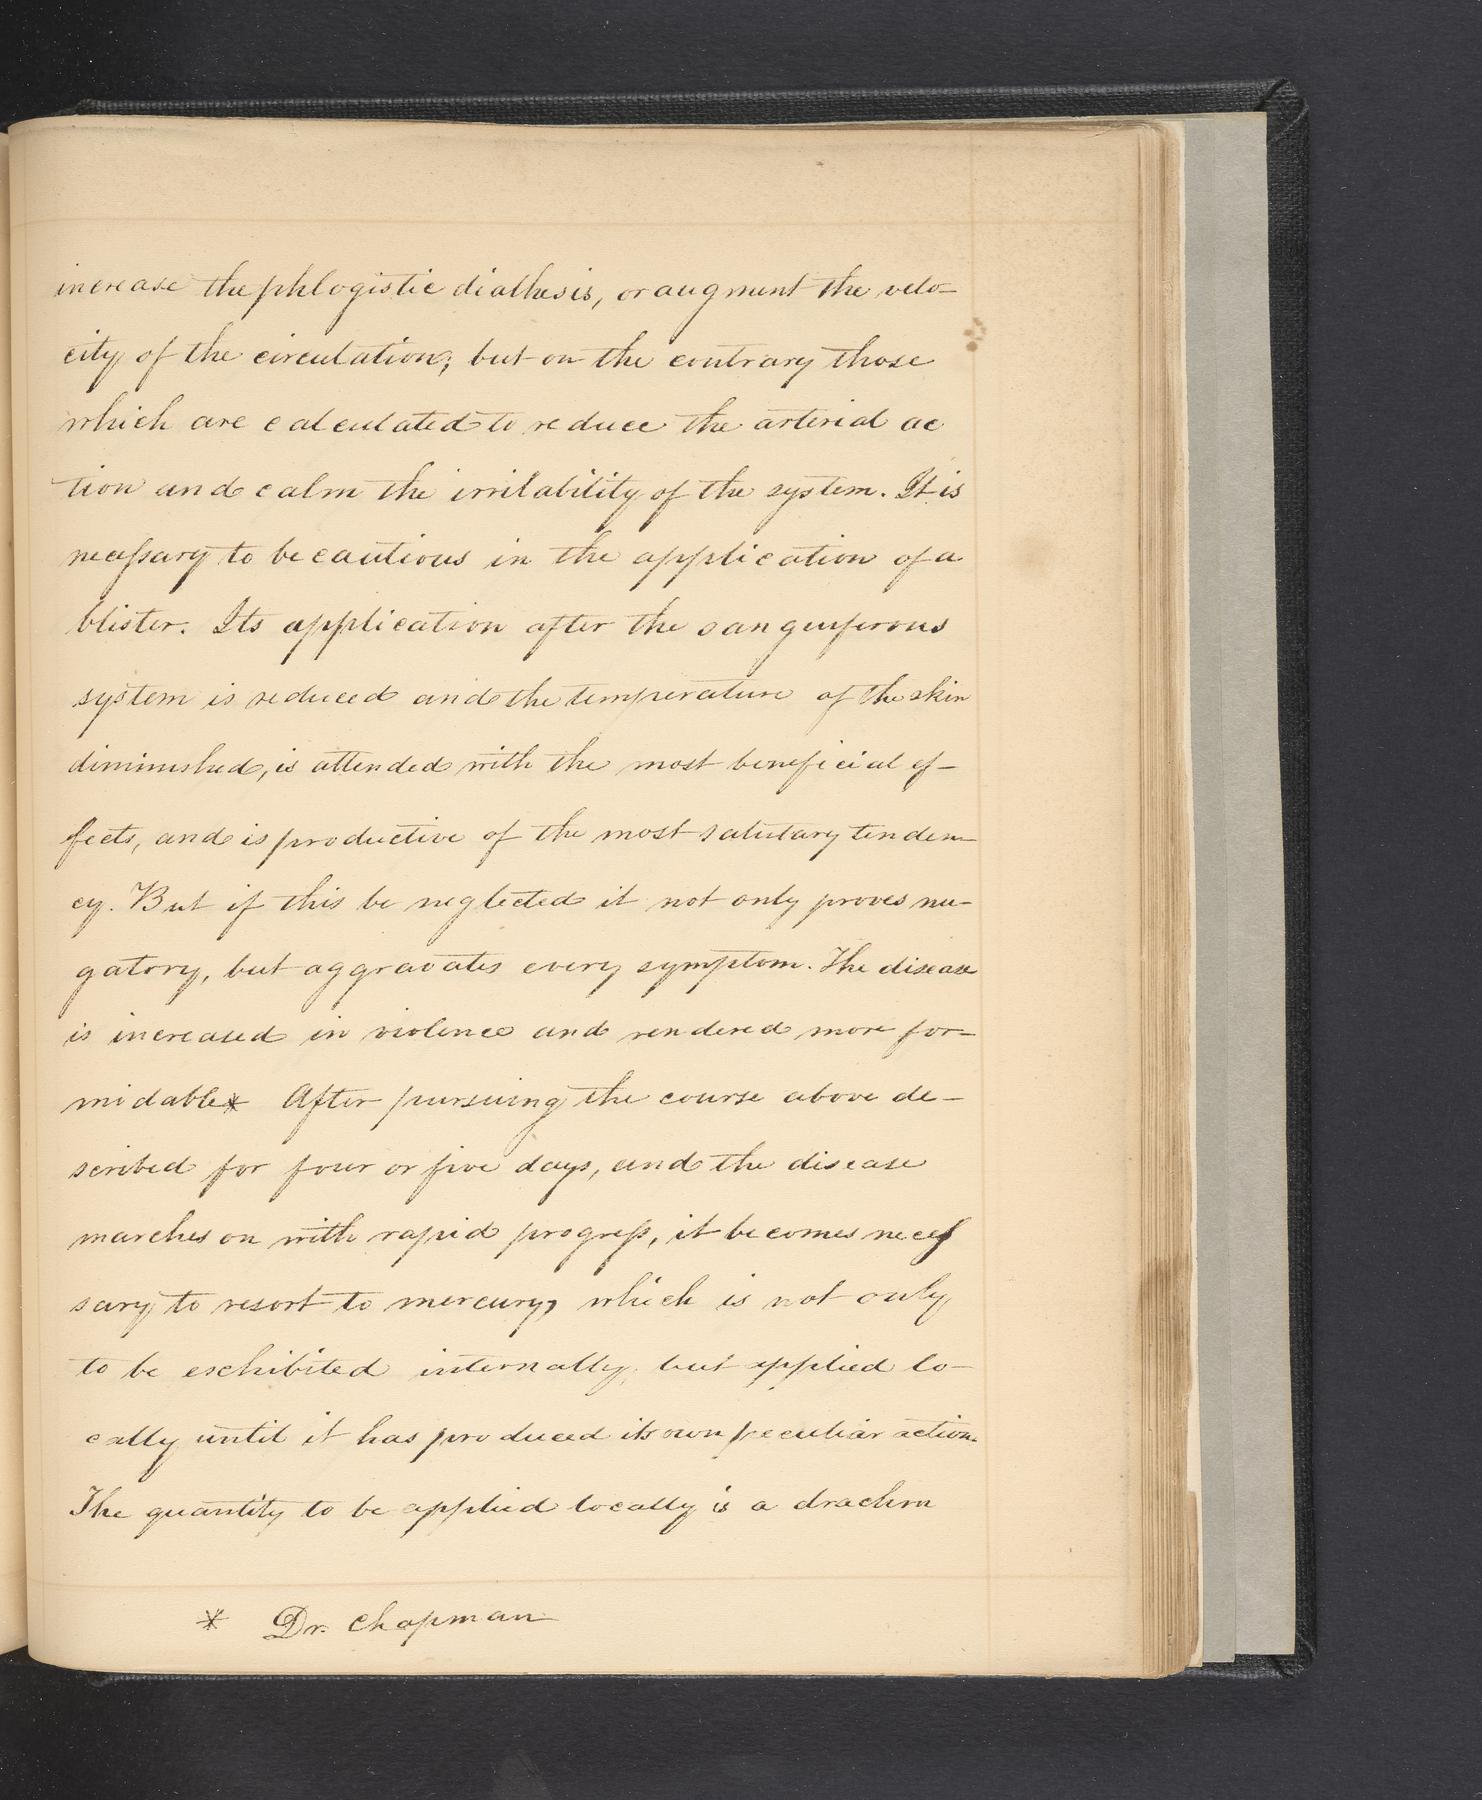 increase the phlogistic diathesis, or augment the velo-
city of the circulation; but on the contrary those
which are calculated to reduce the arterial ac
tion and calm the irritability of the system. It is
necessary to be cautious in the application of a
blister. Its application after the sanguiferous
system is reduced and the temperature of the skin
diminished, is attended with the most beneficial ef-
fects, and is productive of the most salutary tenden-
cy. But if this be neglected it not only proves nu-
gatory, but aggravates every symptom. The disease
is increased in violence and rendered more for-
midable* After pursuing the course above de-
scribed for four or five days, and the disease
marches on with rapid progress, it becomes neces
sary to resort to mercury, which is not only
to be exhibited internally, but applied lo-
cally until it has produced its own peculiar action.
The quantity to be applied locally is a drachm
* Dr. Chapman